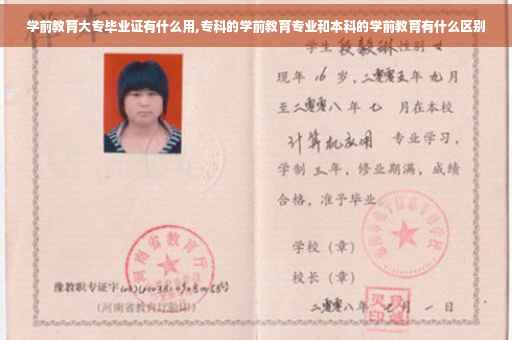 学前教育大专毕业证有什么用,专科的学前教育专业和本科的学前教育有什么区别
学生 段毅琳 性别 女
现年 16 岁，二零零五年 九月
至二零零八年 七 月在本校
计算机应用 专业学习，
学制 三 年，修业期满，成绩
合格，准予毕业
学校（章）
校长（章）
二零零八年 七 月 一 日
河南省教育厅
豫教职专证字
(河南省教育厅验印)